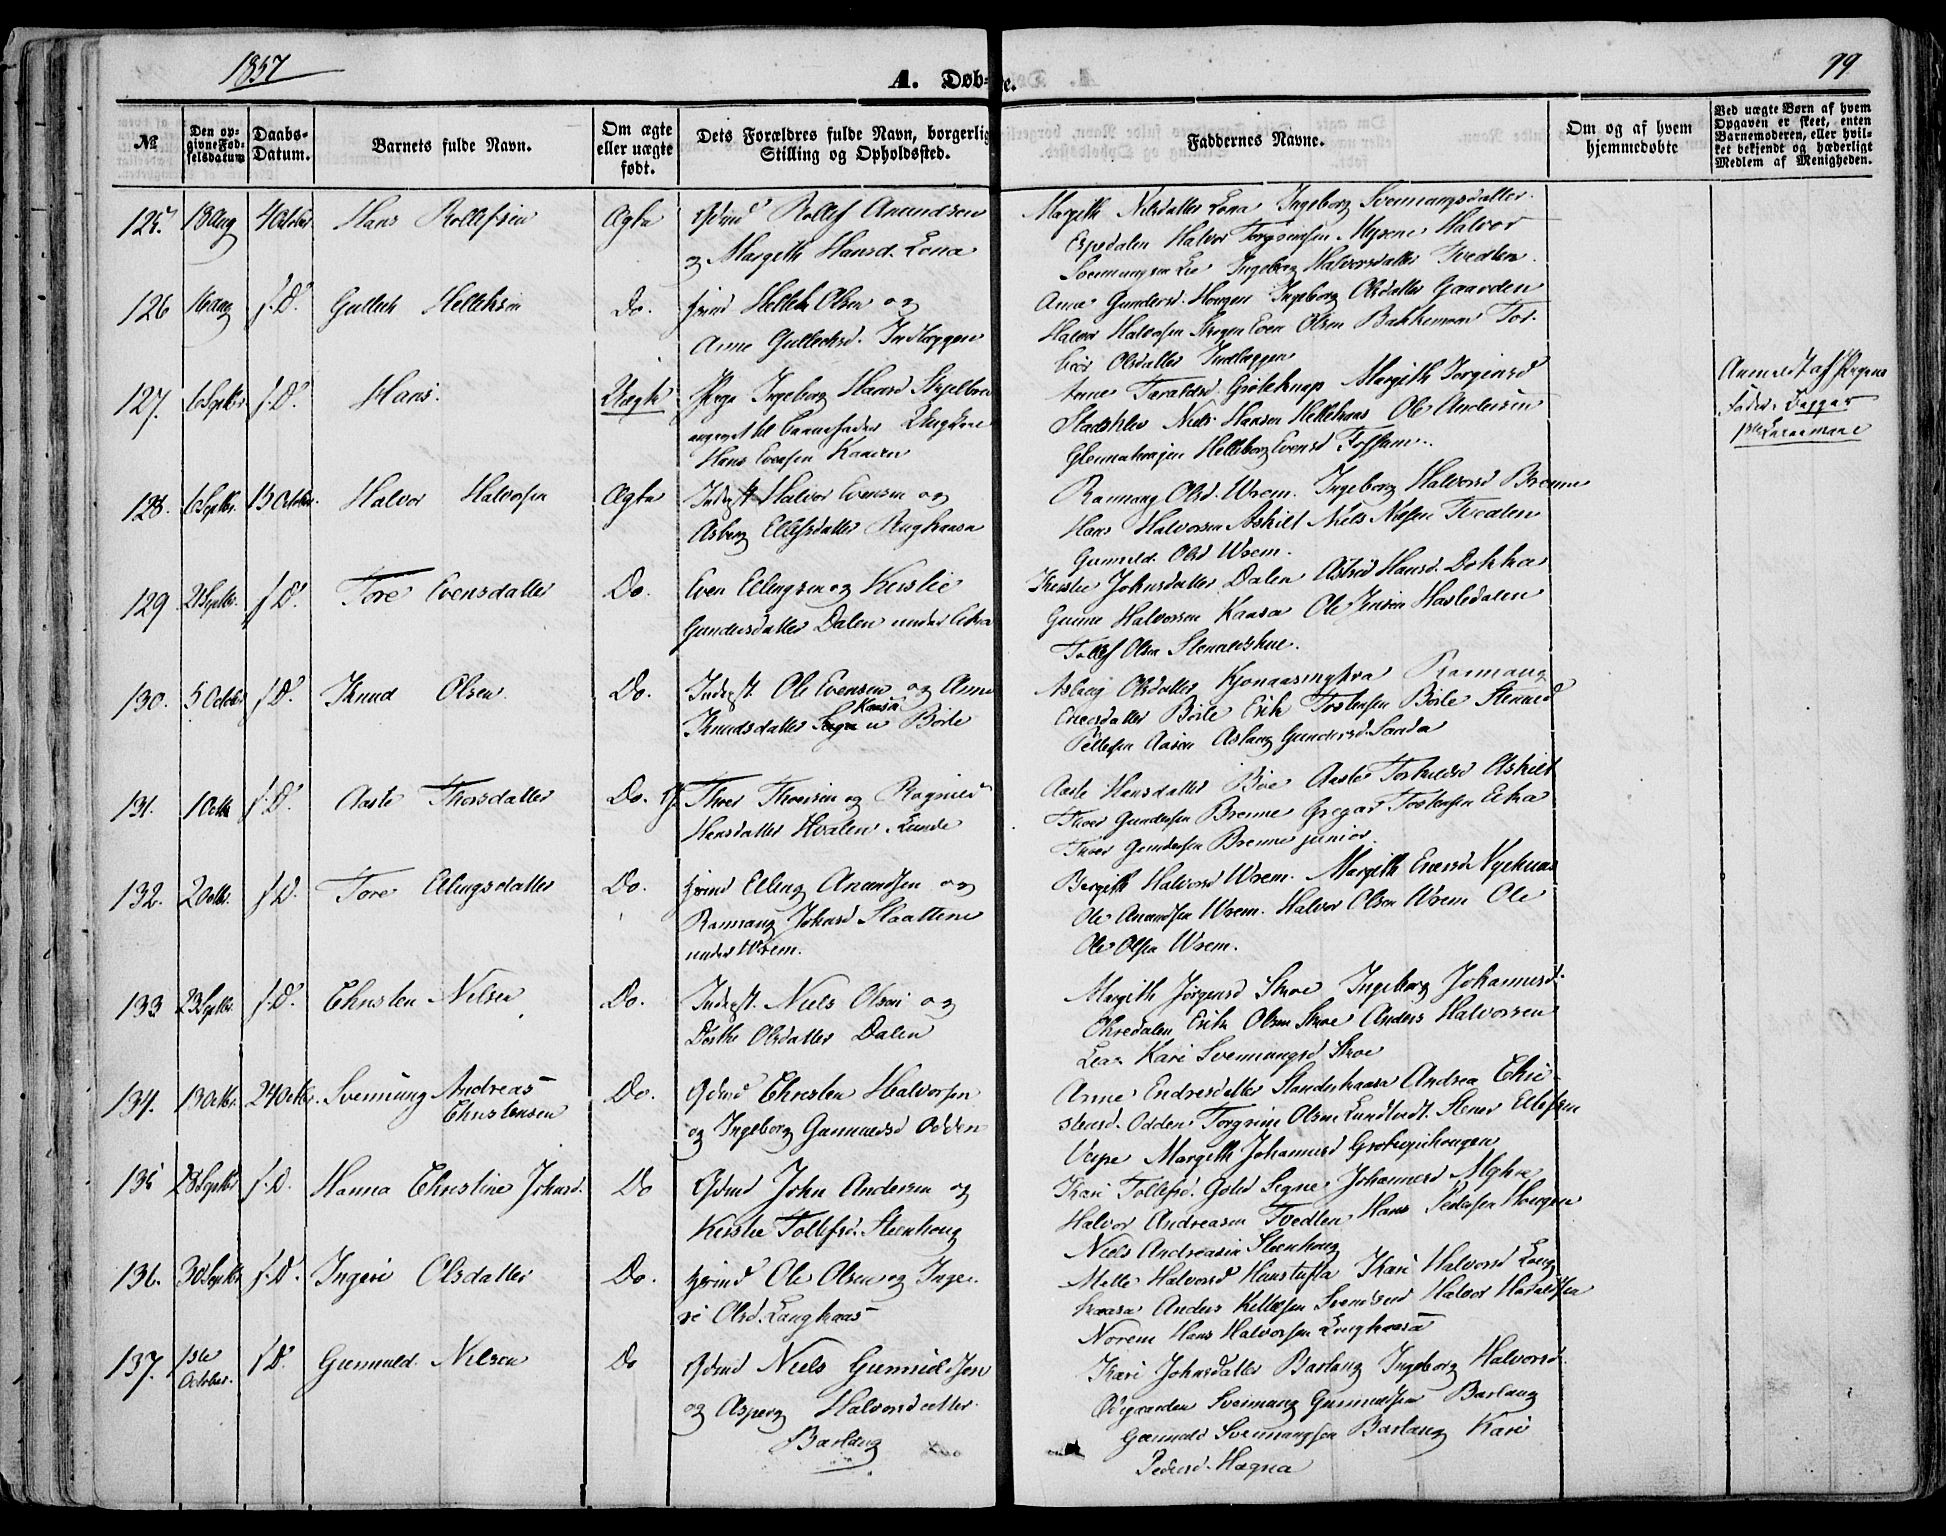 1857
A. Døbte.
99
№
Den op-
givne Fød-
selsdatum
Daabs-
Datum.
Barnets fulde Navn.
Om ægte
eller uægte
født.
Dets Forældres fulde Navn, borgerlig
Stilling og Opholdssted.
Faddernes Navne.
Om og af hvem
hjemmedøbte
Ved uægte Børn af hvem
Opgaven er skeet, enten
Barnemoderen, eller hvil-
ket bekjendt og hæderligt
Medlem af Menigheden.
125. 13 Aug 4 October Hans Rollefsen Ægte Gdmd Rollef Anundsen
og Margeth Hansd. Lona
Margith Nilsdatter Lona Ingeborg Svennungsdatter
Espedalen Halvor Torgrimsen Myrene Halvor
Svennungsen Lie Ingeborg Halvorsdatter Tvedten
126 16 Aug s. D. Gullek Helleksen Do. Hmd Hellek Olsen og
Anne Gulleksd. Indlæggen
Anne Gundersd. Haugen Ingeborg Olsdatter Gaarden
Halvor Halvorsen Skogen Even Olsen Bakkemoen Tor-
bør Olsdatter Indlæggen
127. 6 Septbr s. D. Hans. Uægte Pige Ingeborg Hansd
angivet til Barnefader Ungkarl
Hans Evensen Kaasen
Anne Taraldsd. Groteknap Margith Jørginsd
Niels Hansen Ole Andersen
Helleborg Evensd Fossum.
Anmeldt af Pigens
Fader
128. 6 Septbr. 15 October. Halvor Halvorsen Ægte Inderst Halvor Evensen og
Asberg Ellefsdatter
Rannaug Olsd. Wrem. Ingeborg Halvorsd Brenne
Hans Halvorsen Askilt Niels Nilsen Tvedten
Gunnild. Olsd Wrem.
129 21 Septbr. s. D. Tore Evensdatter Do. Even Ellingsen og Kirstie
Gundersdatter Dalen under Eika
Kirstie Johnsdatter Dalen Astrid Hansd. Dokka
Gunne Halvorsen Kaasa Ole Jensen Hasledalen
Tollef Olsen
130. 5 October s. D. Knud Olsen Do. Inderst. Ole Evensen og Anne
Kaasa
Knudsdatter u Borle
Aslaug Olsdatter Rannaug
Ericsdatter Borle Erik Torstensen Borle
Aasen Aslaug Gundersd. Sanda
131. 1 Octb s. D. Aaste Thorsdatter Do. G. Thor Thorsen og Ragnild
Hansdatter Hvalen. Lunde
Aaste Hansdatter Bøe Aaste Torkildsd Askilt
Thor Gundersen Brenne Gregar Torstensen Eika
Thor Gundersen Brenne junior.
132. 2 Octbr. s. D. Tore Ellingsdatter Do. Hmd Elling Anundsen og
Rannaug Johnsd Slaattene
under Wrem.
Bergith Halvorsd Wrem. Margith Evensd
Ole Anundsen Wrem. Halvor Olsen Wrem Ole
Ole Olsen Wrem.
133 23 Septbr. s. D. Christen Nilsen Do. Inderst. Niels Olsen og
Dorthe Olsdatter Dalen
Margith Jørgensd Skoe Ingeborg Johannesd.
Økredalen Erik Olsen Skoe Anders Halvorsen
Lea Kari Svennungsd Skoe
134. 13 Octbr. 24 Octbr. Svennung Andreas
Christensen
Do. Gdmd Christen Halvorsen
og Ingeborg Gunnuldsd Odden
Anne Endresdatter Andrea Chri-
stensd. Odden Torgrim Olsen Lundtvedt. Stener Ellefsen
Veipe Margith Johannesd
135 28 Septbr s. D. Hanna Christine Johnsd. Do Gdmd John Andersen og
Kirstie Tollefsd. Steenhoug
Kari Tollefsd. Signe Johannesd
Halvor Andreasen Tvedten Hans Pedersen Haugen
Niels Andreasen Steenhoug
136. 30 Septbr s. D. Ingeri Olsdatter Do. Hmd Ole Olsen og Inge-
ri Olsd. Langkaas
Mille Halvorsd Hanstufta Kari Halvorsd Lang
kaasa Anders Kittelsen Halvor
Norem Hans Halvorsen Langkaasa
137. 1ste
October. s. D. Gunnuld Nilsen Do Gdmd Niels Gunnuldsen
og Asperg Halvorsdatter
Barlaug
Kari Johnsdatter Barlaug Ingeborg Halvorsd.
Ødegaarden Svennung Gunnuldsen Barlaug
Gunnuld Svennungsen Barlaug Kari
Pedersd. Hagna